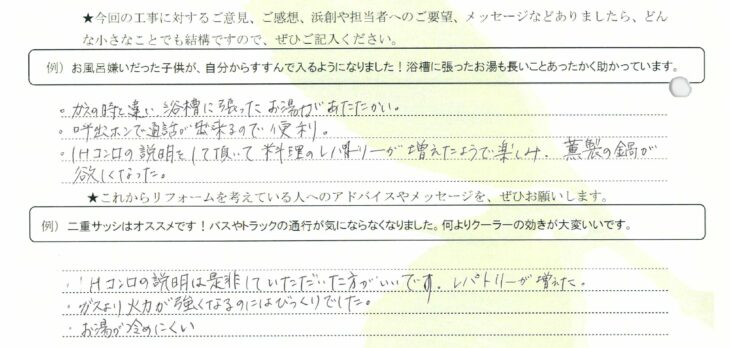 ★今回の工事に対するご意見、ご感想、浜創や担当者へのご要望、メッセージなどありましたら、どん
な小さなことでも結構ですので、ぜひご記入ください。
例）お風呂嫌いだった子供が、自分からすすんで入るようになりました！浴槽に張ったお湯も長いことあったかく助かっています。
・ガスの時と違い浴槽に張ったお湯があたたかい。
・呼出ホンで通話が出来るので便利。
・IHコンロの説明をして頂いて料理のレパートリーが増えたようで楽しみ．燻製の鍋が
欲しくなった。
★これからリフォームを考えている人へのアドバイスやメッセージを、ぜひお願いします。
例）二重サッシはオススメです！バスやトラックの通行が気にならなくなりました。何よりクーラーの効きが大変いいです。
・IHコンロの説明は是非していただいた方がいいです．レパトリーが増えた．
・ガスより火力が強くなるのにはびっくりでした。
・お湯が冷めにくい